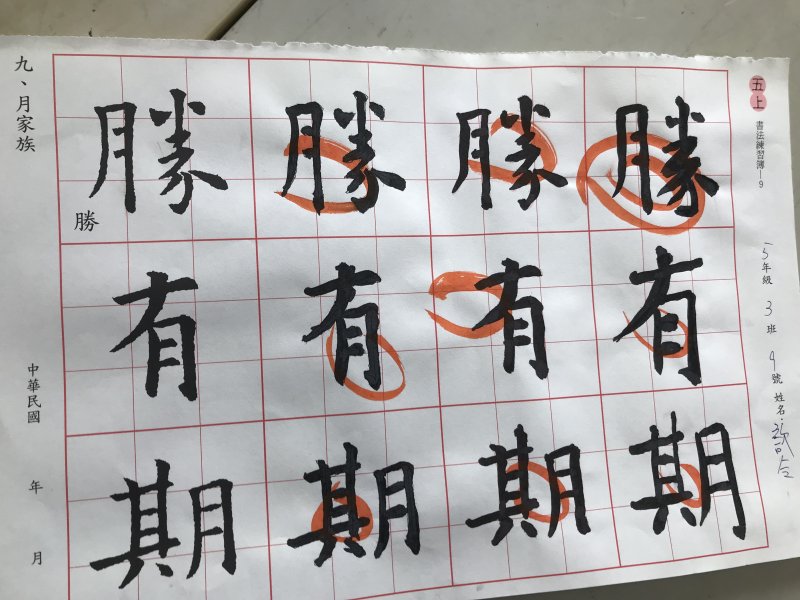 九、月家族
勝 勝 勝 勝
勝
有 有 有 有
期 期 期 期
中華民國 年 月
五上
書法練習簿—9
5年級 3班 4號 姓名: